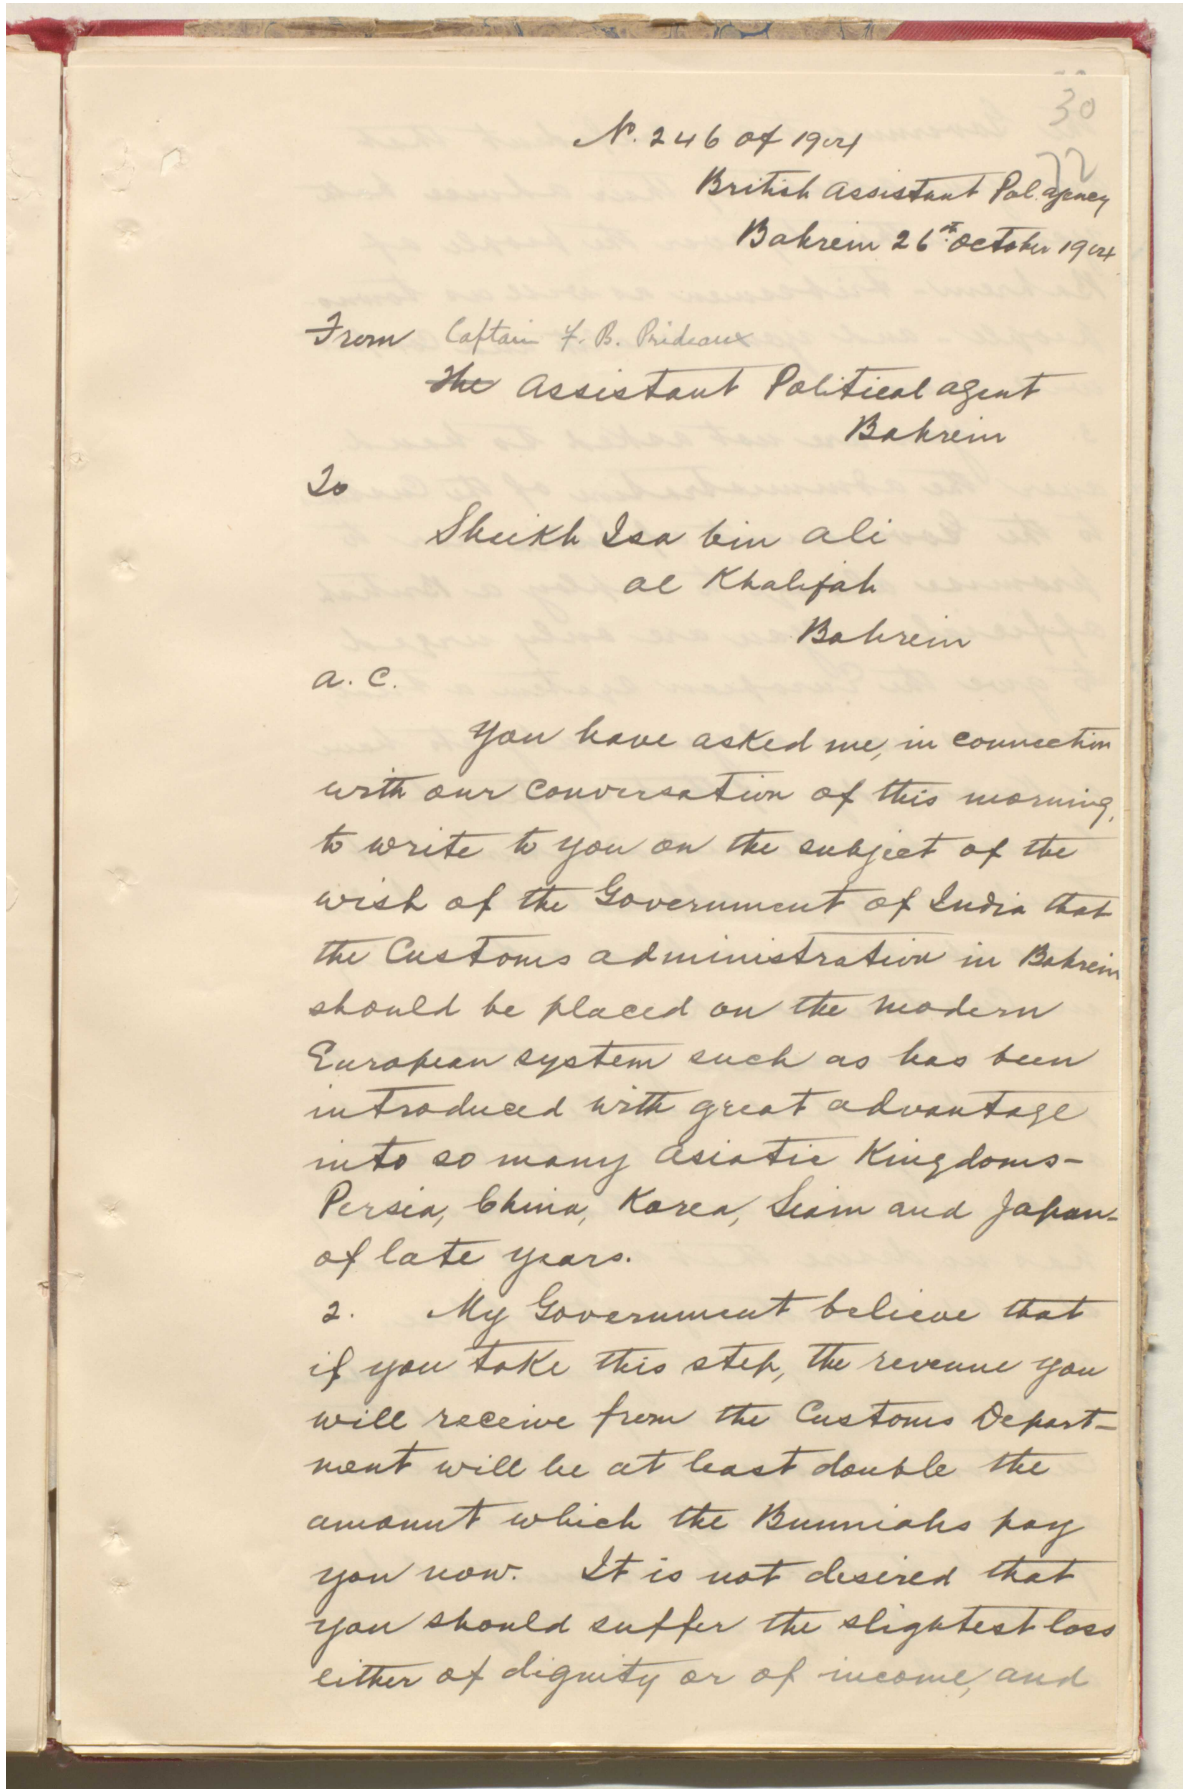 30
22
No. 246 of 1904
British Assistant Pol. Agency
Bahrein 26th October 1904
From Captain F. B. Prideaux
The Assistant Political Agent
Bahrein
To
Sheikh Isa bin Ali
al Khalifah
Bahrein
A. C.
You have asked me, in connection
with our conversation of this morning,
to write to you on the subject of the
wish of the Government of India that
the Customs administration in Bahrein
should be placed on the modern
European system such as has been
introduced with great advantage
into so many Asiatic Kingdoms -
Persia, China, Korea, Siam and Japan -
of late years.
2. My Government believe that
if you take this step, the revenue you
will receive from the Customs Depart-
ment will be at least double the
amount which the Bunniahs pay
you now. It is not desired that
you should suffer the slightest loss
either of dignity or of income, and